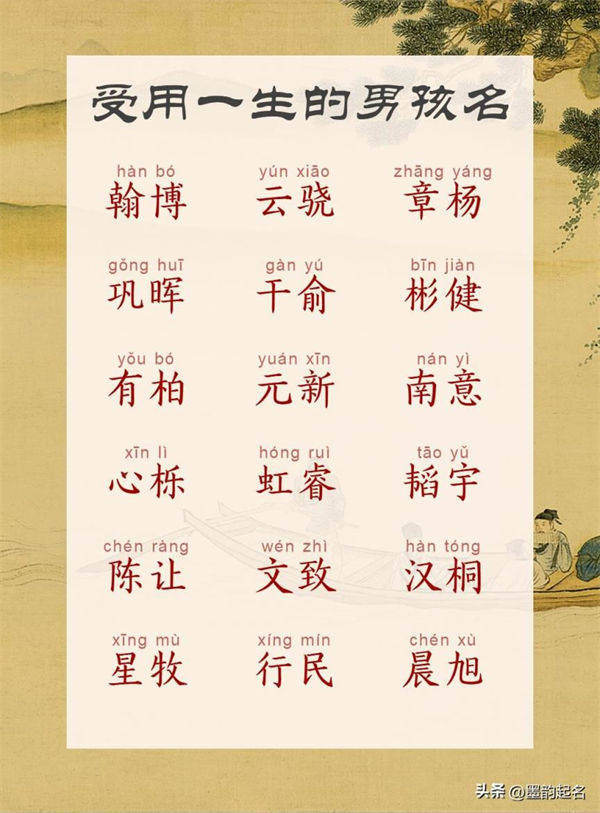 受用一生的男孩名
hàn bó yún xiāo zhāng yáng
翰博 云骁 章杨
gǒng huī gàn yú bīn jiàn
巩晖 干俞 彬健
yǒu bó yuán xīn nán yì
有柏 元新 南意
xīn lì hóng ruì tāo yǔ
心栎 虹睿 韬宇
chén ràng wén zhì hàn tóng
陈让 文致 汉桐
xīng mù xíng mín chén xù
星牧 行民 晨旭
头条 @墨韵起名